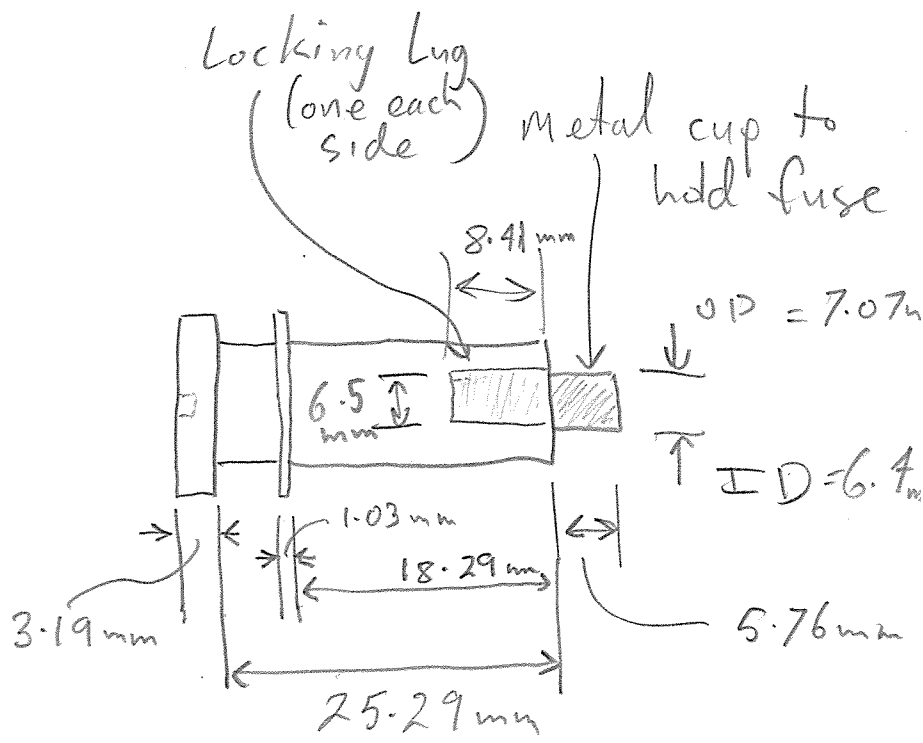 Locking Lug
(one each
side)
Metal cup to
hold fuse
8.41 mm
OD = 7.07m
6.5
mm
ID = 6.4m
1.03 mm
18.29 mm
3.19 mm
5.76 mm
25.29 mm